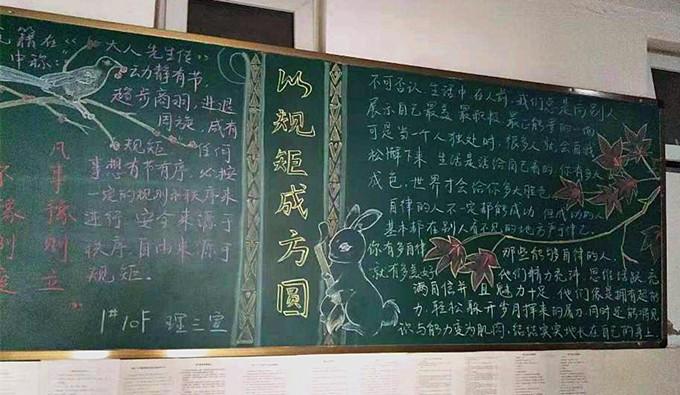 籍在“大人先生传”
中称：“动静有节，
趋步商羽，进退
周旋，咸有
规矩。”任何
事想有节有序，必按
一定的规则和秩序来
进行，安全来源于
秩序，自由来源于
规矩。
凡事豫则立
不豫则废
1#10F 理三宣
以规矩成方圆
不可否认，生活中在人前，我们总是向别人
展示自己最美、最积极、最正能量的一面
可是当一个人独处时，很多人就会自我
松懈下来，生活是活给自己看的，你有多大
成色，世界才会给你多大脸色
自律的人不一定都能成功，但成功的人
基本都在别人看不见的地方严于律己。
你有多自律，
就有多美好
那些能够自律的人，
他们精力充沛，思维活跃，充
满自信并且魅力十足，他们像是拥有超能
力，轻松躲开岁月挥来的屠刀，同时还能将见
识与能力变为肌肉，结结实实地长在自己的身上